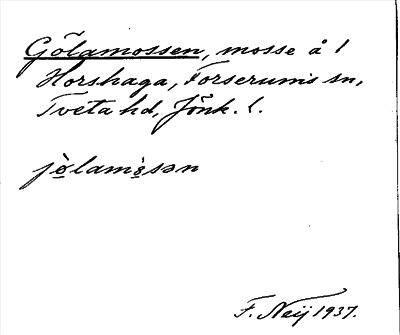 Gölamossen, mosse å 1
Horshaga, Forserums sn,
Tveta hd, Jönk. l.
jö̀lamòsən
F. Neij 1937.